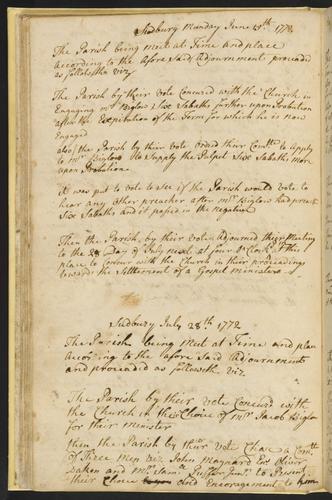 Sudbury Monday June 15th 1772
The Parish being meet at Time and place
According to the afore Said Adjournment proceeded
as followeth viz
The Parish by their Vote Concured with the Church in
Engaging mr Biglow Six Sabaths further upon Probation
after the Expiration of the Term for which he is now
Engaged
also the Parish by their vote ordred their Comtte to Apply
to mr Biglow to Supply the Pulpet Six Sabaths more
upon Probation
it was put to vote to see if the Parish would vote to
hear any other preacher after mr Biglow had preach
Six Sabaths and it passed in the negative
Then the Parish by their vote Adjourned their meeting
to the 28 Day of July next at four o Clock at this
place to Concur with the Church in their proceedings
towards the Settlement of a Gospel minister
Sudbury July 28th 1772
The Parish being meet at Time and place
According to the afore Said Adjournment
and proceeded as followeth viz
The Parish by their vote Concurd with
the Church in their Choice of mr Jacob Biglow
for their minister
then the Parish by their vote Chose a Comtt
of Three men viz John Maynard Oliver
Daken and mr Saml to
their Choice and Encouragement to him